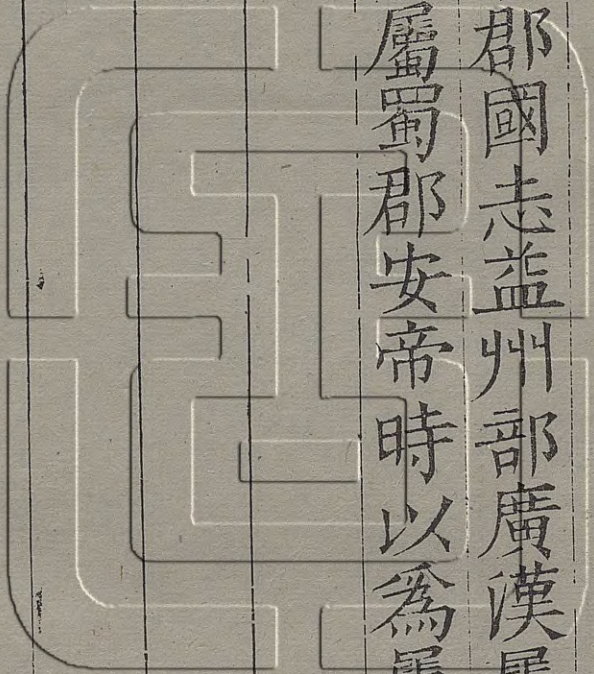 郡國志益州部廣漢屬
屬蜀郡安帝時以爲屬